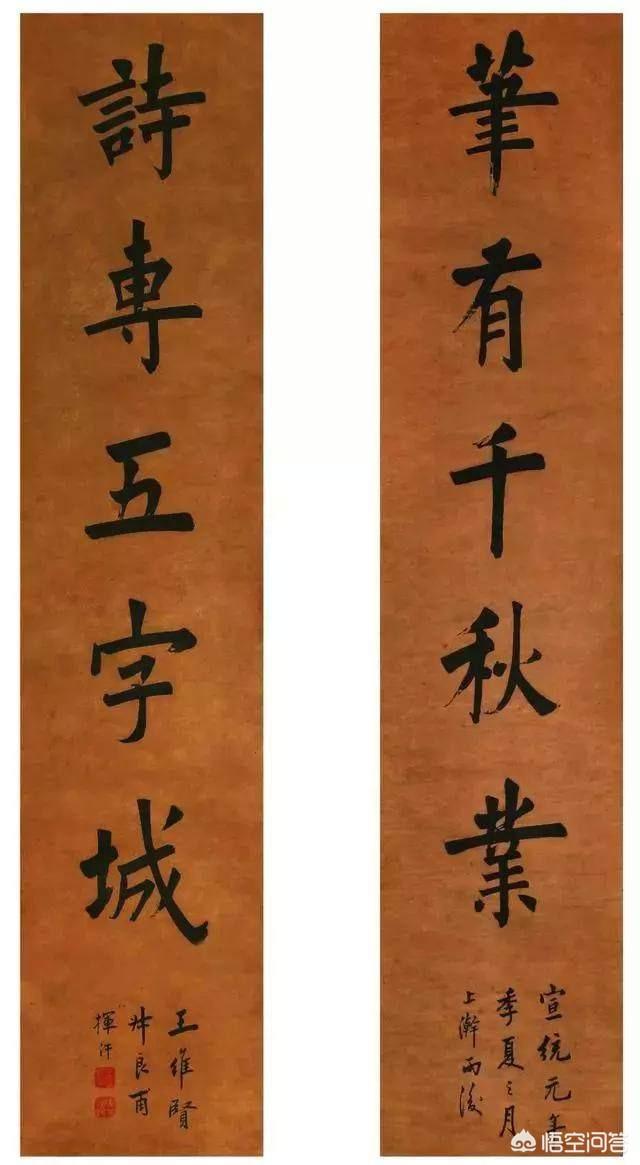 筆有千秋業
宣統元年
季夏之月
上澣雨後
詩專五字城
王維賢
叔良甫
揮汗
悟空问答